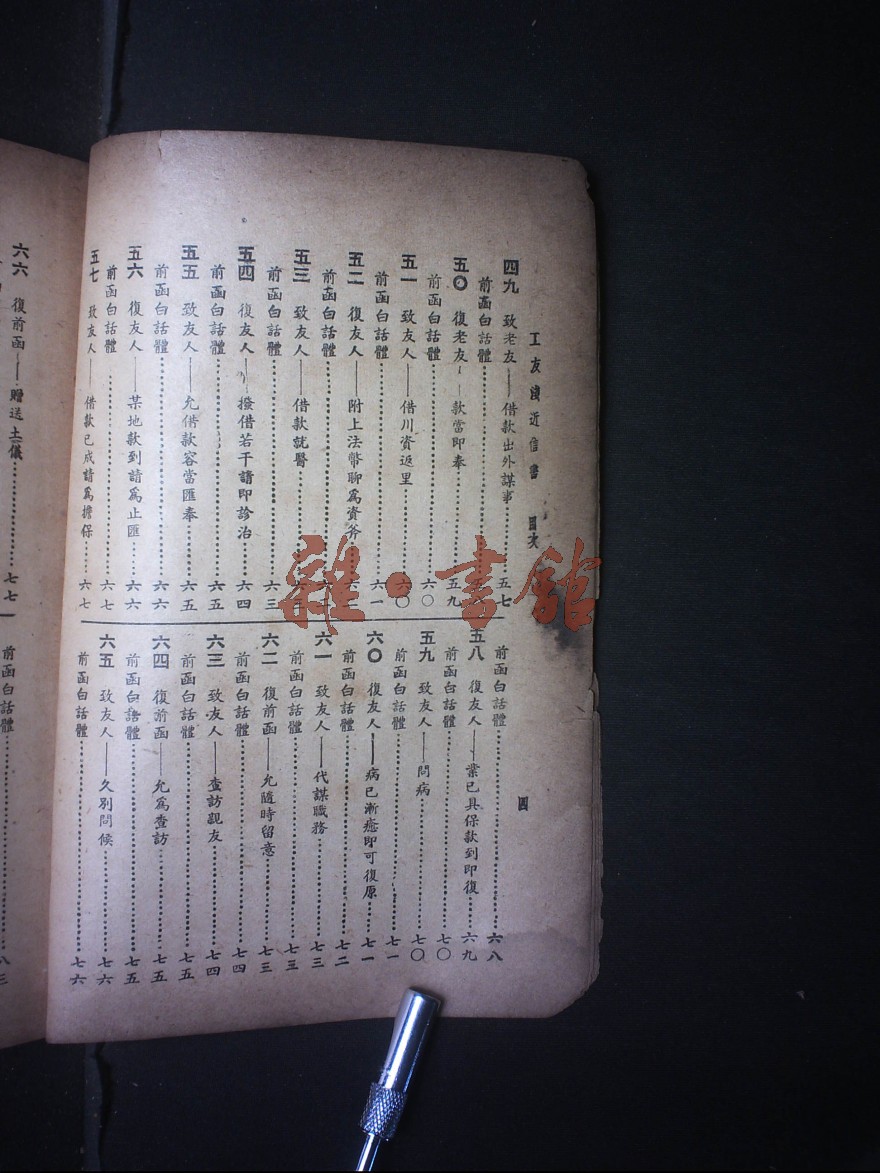 工友淺近信書 目次
四
四九 致老友——借款出外謀事……五七
前函白話體……
五〇 復老友——款當即奉……五九
前函白話體……六〇
五一 致友人——借川資返里……六〇
前函白話體……六一
五二 復友人——附上法幣聊爲資斧……
前函白話體……
五三 致友人——借款就醫……
前函白話體……六三
五四 復友人——撥借若干請即診治……六四
前函白話體……六五
五五 致友人——允借款容當匯奉……六五
前函白話體……六六
五六 復友人——某地款到請爲止匯……六六
前函白話體……六七
五七 致友人——借款已成請爲擔保……六七
前函白話體……六八
五八 復友人——業已具保款到即復……六九
前函白話體……七〇
五九 致友人——問病……七〇
前函白話體……七一
六〇 復友人——病已漸癒即可復原……七一
前函白話體……七二
六一 致友人——代謀職務……七三
前函白話體……七三
六二 復前函——允隨時留意……七三
前函白話體……七四
六三 致友人——查訪親友……七四
前函白話體……七五
六四 復前函——允爲查訪……七五
前函白話體……七五
六五 致友人——久別問候……七六
前函白話體……七六
六六 復前函——贈送土儀……七七
前函白話體……八三
雜·書館